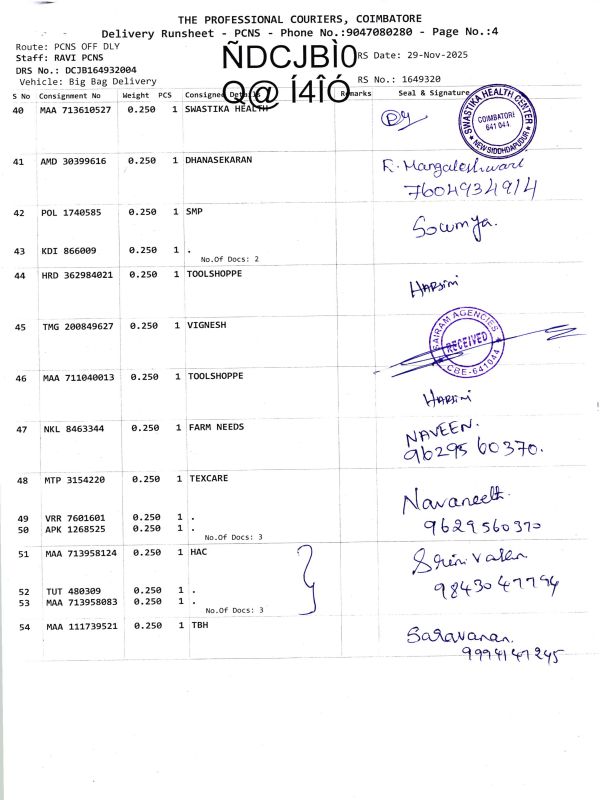 THE PROFESSIONAL COURIERS, COIMBATORE
Delivery Runsheet - PCNS - Phone No.:9047080280 - Page No.:4
Route: PCNS OFF DLY
Staff: RAVI PCNS
ÑDCJBÌ0
RS Date: 29-Nov-2025
DRS No.: DCJB164932004
Vehicle: Big Bag Delivery
Q@ Í4ÎÓ
RS No.: 1649320
S No Consignment No Weight PCS Consignee Details Remarks Seal & Signature
40 MAA 713610527 0.250 1 SWASTIKA HEALTH
SWASTIKA HEALTH CENTER
COIMBATORE
641 044
NEW SIDDHAPUDUR
41 AMD 30399616 0.250 1 DHANASEKARAN
R. Mangaleshwari
7604934914
42 POL 1740585 0.250 1 SMP
Sowmya.
43 KDI 866009 0.250 1 .
No.Of Docs: 2
44 HRD 362984021 0.250 1 TOOLSHOPPE
Harsini
45 TMG 200849627 0.250 1 VIGNESH
SAIRAM AGENCIES
RECEIVED
CBE-641044
46 MAA 711040013 0.250 1 TOOLSHOPPE
Harsini
47 NKL 8463344 0.250 1 FARM NEEDS
NAVEEN.
9629560370.
48 MTP 3154220 0.250 1 TEXCARE
Navaneeth.
49 VRR 7601601 0.250 1 .
50 APK 1268525 0.250 1 .
9629560370
No.Of Docs: 3
51 MAA 713958124 0.250 1 HAC
Srinivasan
52 TUT 480309 0.250 1 .
9843047794
53 MAA 713958083 0.250 1 .
No.Of Docs: 3
54 MAA 111739521 0.250 1 TBH
Saravanan.
9994147245